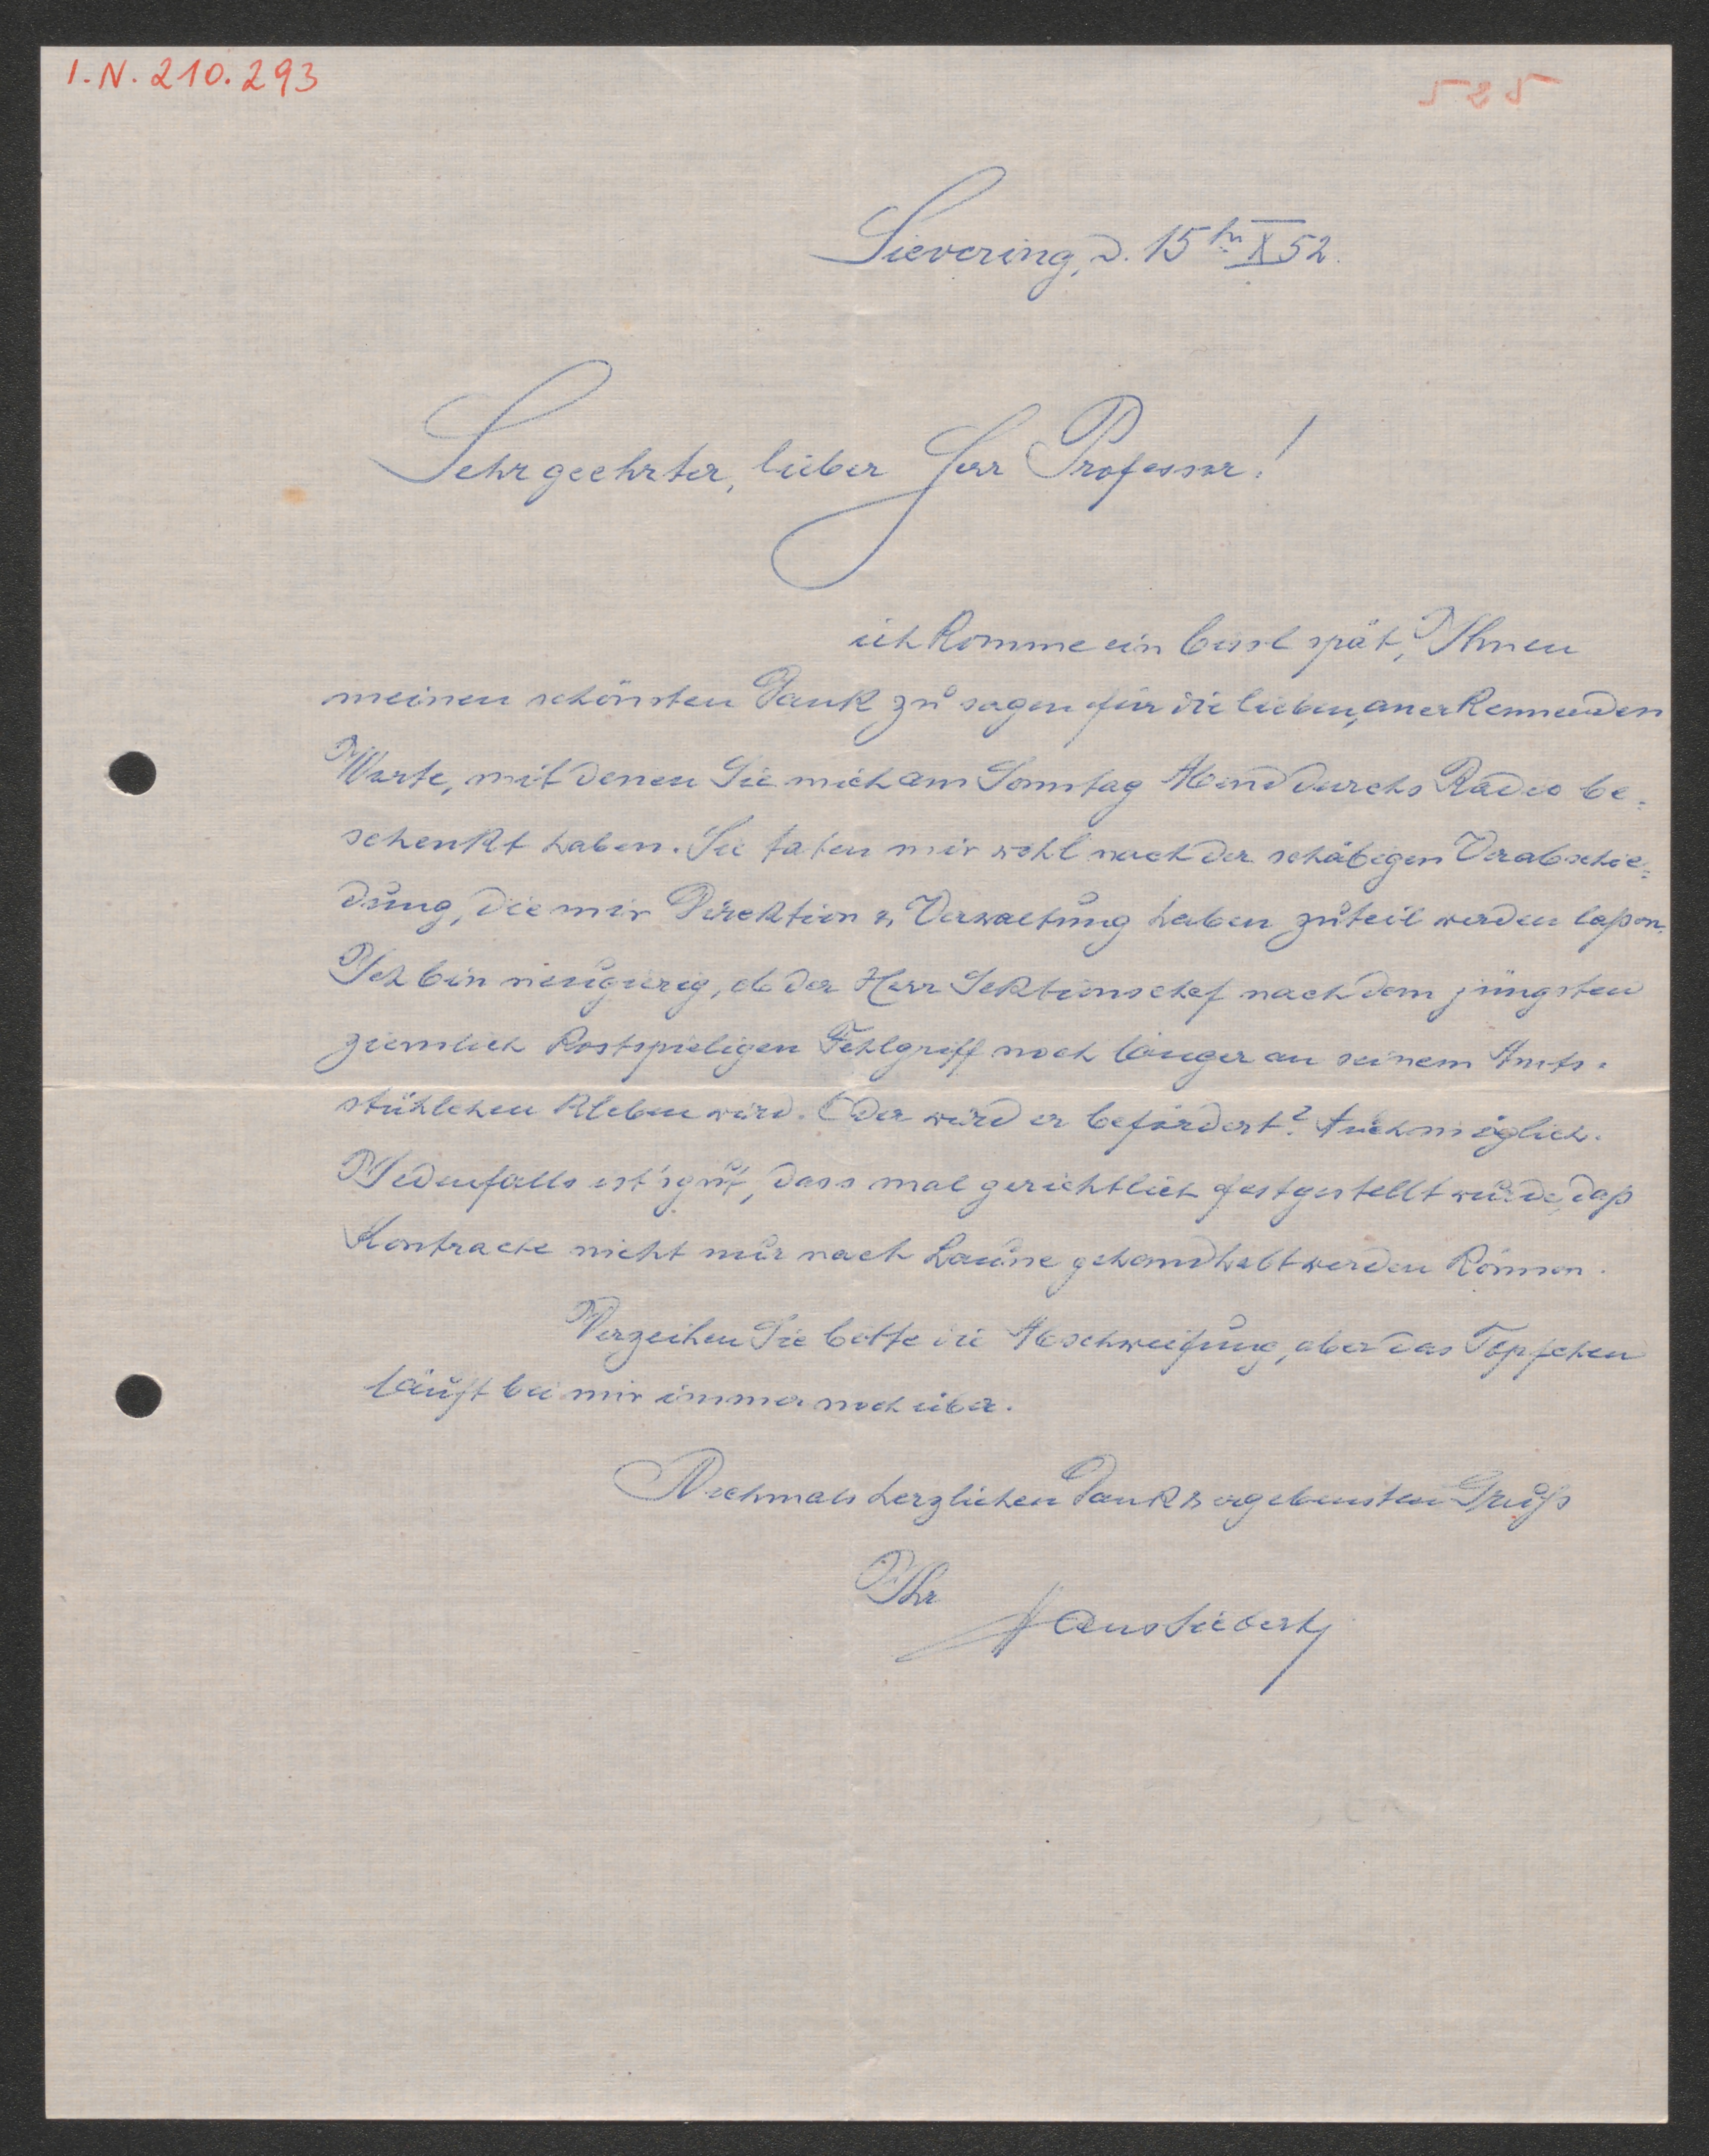 I.N. 210.293
525
Sievering, d. 15ten X 52.
Sehr geehrter, lieber Herr Professor!
ich komme ein bissl spät, Ihnen
meinen schönsten Dank zu sagen für die lieben, anerkennenden
Worte, mit denen Sie mich am Sonntag Abend durchs Radio be=
schenkt haben. Sie taten mir wohl nach der schäbigen Verabschie=
dung, die mir Direktion u. Verwaltung haben zuteil werden laßen.
Ich bin neugierig, ob der Herr Sektionschef nach dem jüngsten
ziemlich kostspieligen Fehlgriff noch länger an seinem Amts=
stühlchen kleben wird. Oder wird er befördert? Auch möglich.
Jedenfalls ist's gut, dass mal gerichtlich festgestellt wurde, daß
Kontracte nicht nur nach Laune gehandhabt werden können.
Verzeihen Sie bitte die Abschweifung, aber das Töpfchen
läuft bei mir immer noch über.
Nochmals herzlichen Dank u. ergebensten Gruß
Ihr
Hans Siebert